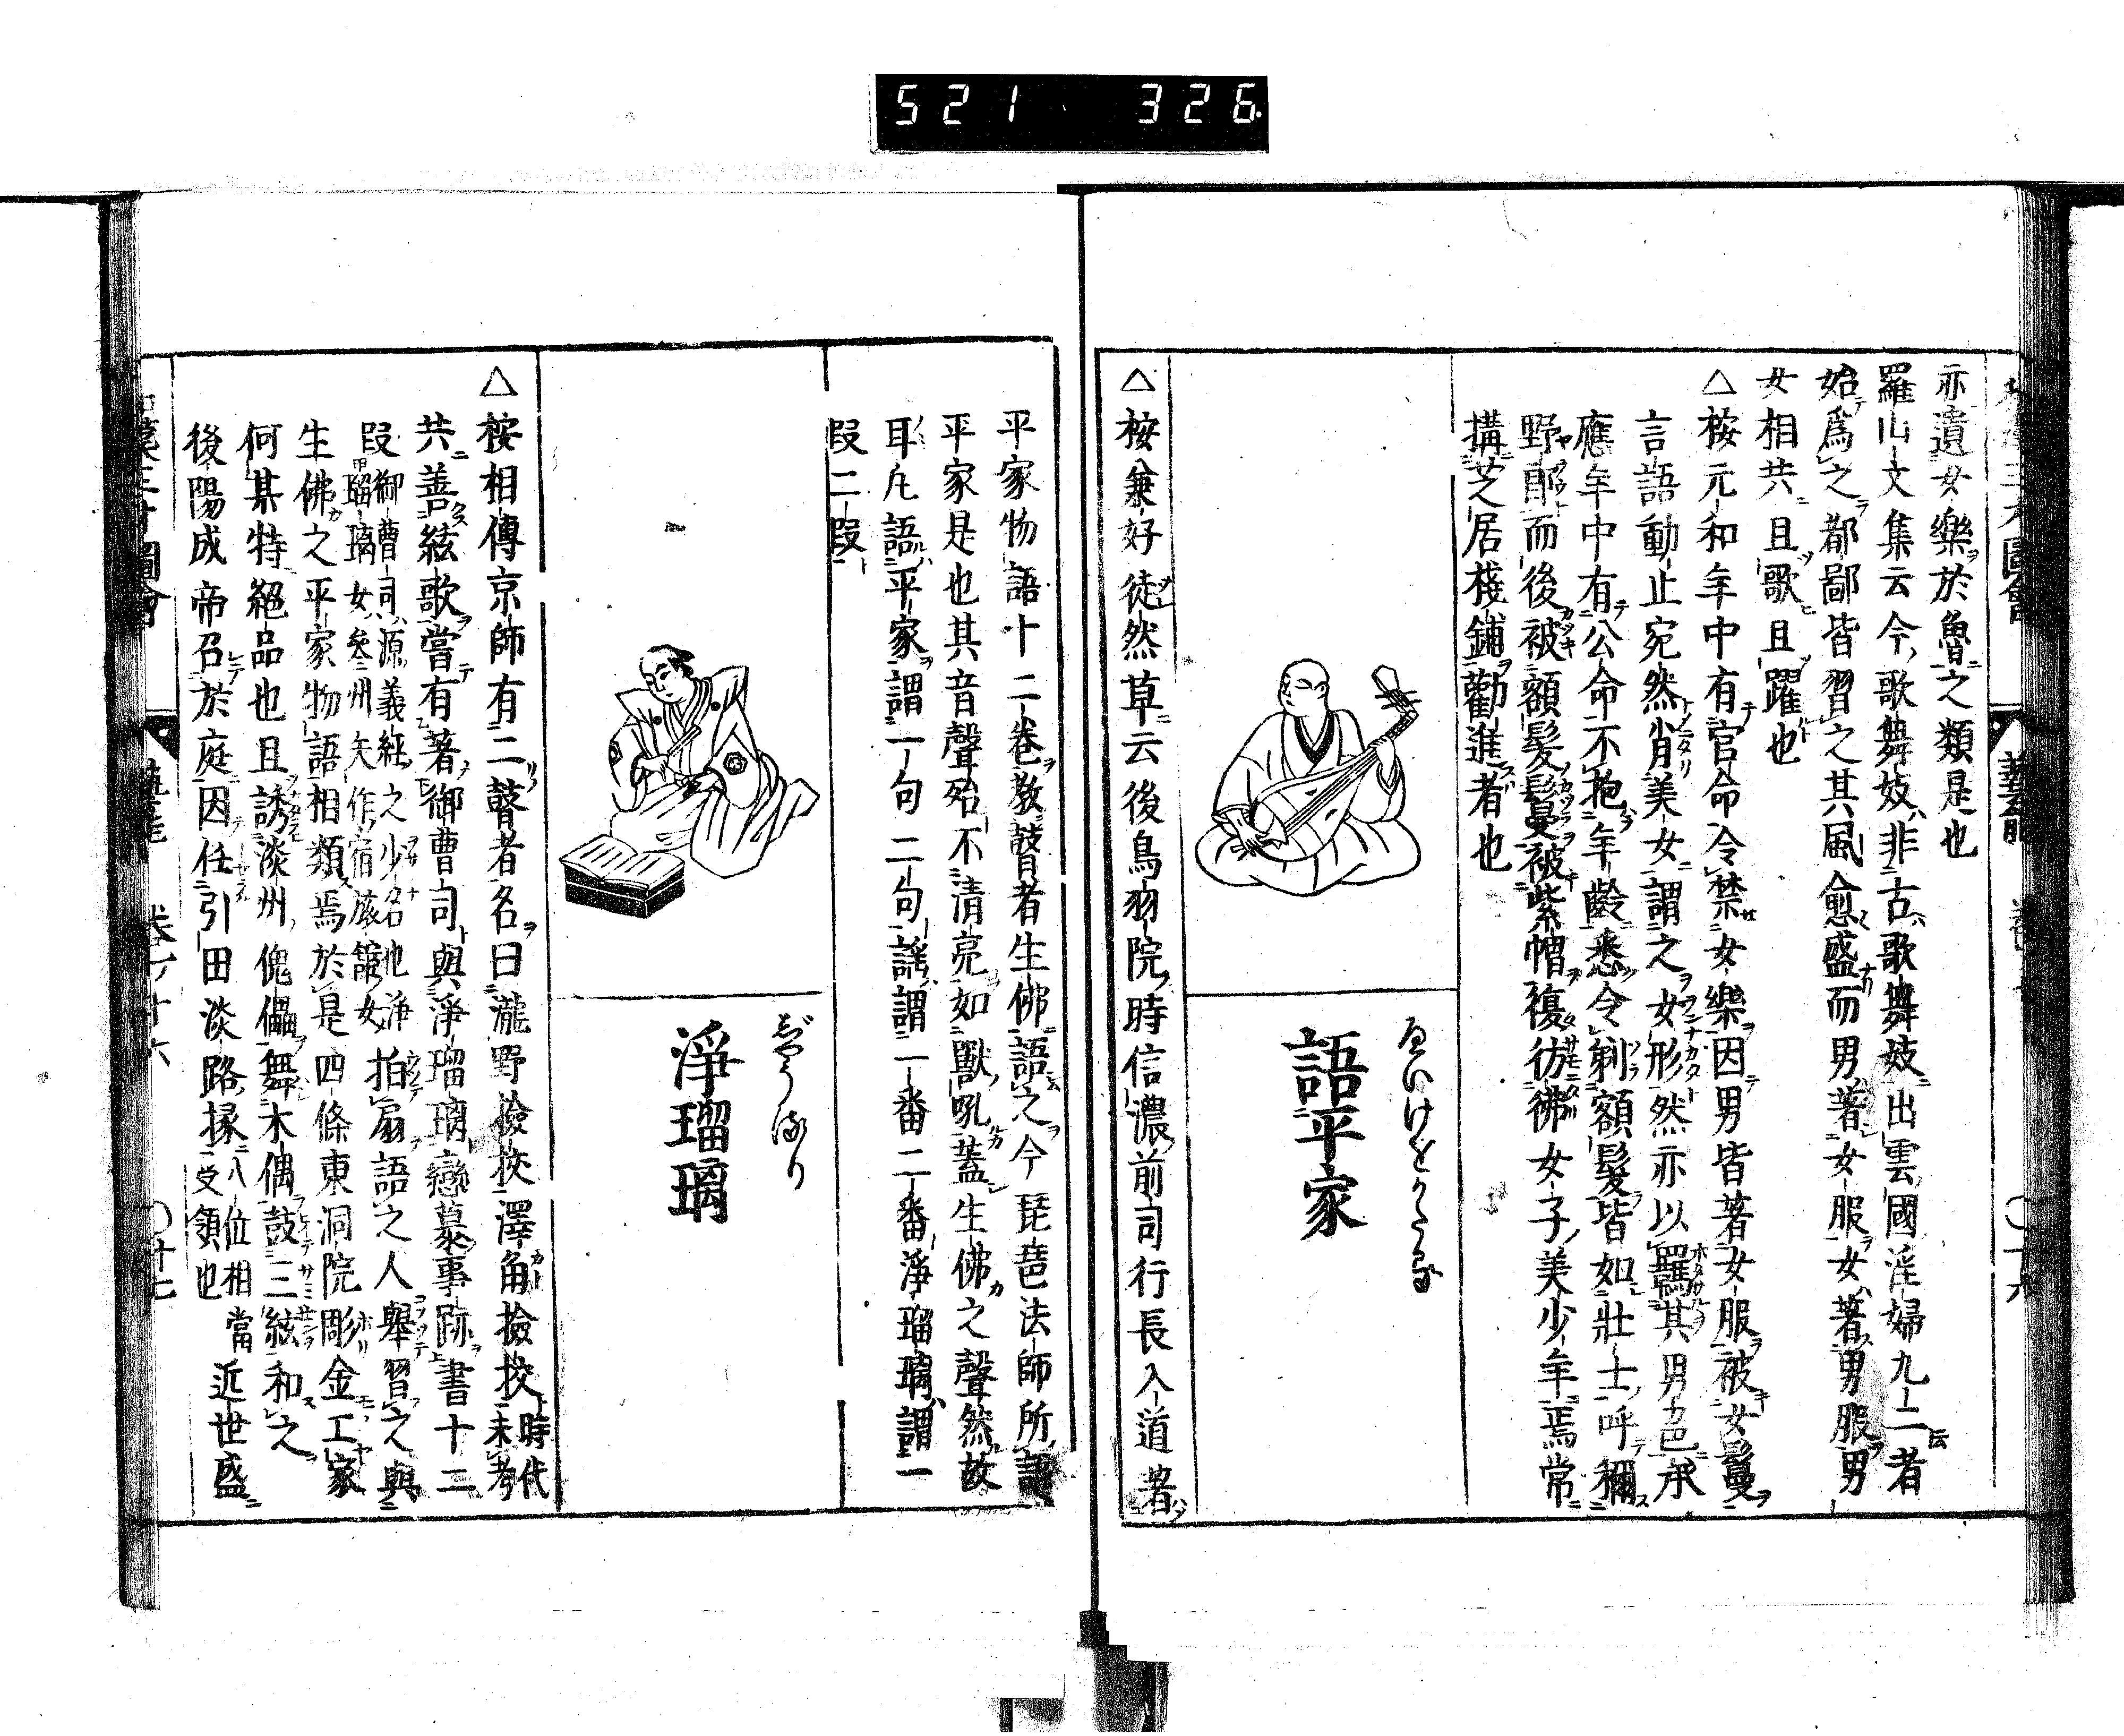 521 326
亦遺女樂於魯之類是也
羅山文集云今歌舞妓非古歌舞妓出雲國淫婦九二者
始爲之都鄙皆習之其風愈盛而男著女服女著男服男
女相共且歌且躍也
△按元和年中有官命令禁女樂因男皆著女服被女鬘
言語動止宛然肖美女謂之女形然亦以羂其男色承
應年中有公命不抱年齡悉令剃額髮皆如壯士呼稱
野郎而後被額髮鬘被紫帽複彷彿女子美少年焉常
搆芝居棧鋪勸進者也
語平家
△按兼好徒然草云後鳥羽院時信濃前司行長入道著
藝能
平家物語十二卷教瞽者生佛語之今琵琶法師所語
平家是也其音聲殆不清亮如獸吼蓋生佛之聲然故
耳凡語平家謂一句二句謡謂一番二番淨瑠璃謂一
段二段
じやうるり
淨瑠璃
△按相傳京師有二瞽者名曰瀧野撿挍澤角撿挍時代未考
共善絃歌嘗有著御曹司與淨瑠璃戀慕事跡書十二
段御曹司源義經之少名也淨瑠璃女參州矢作宿旅舘女拍扇語之人舉習之與
生佛之平家物語相類焉於是四條東洞院彫金工家
何某特絕品也且誘淡州傀儡舞木偶鼓三絃和之
後陽成帝召於庭因任引田淡路掾八位相當受領也近世盛